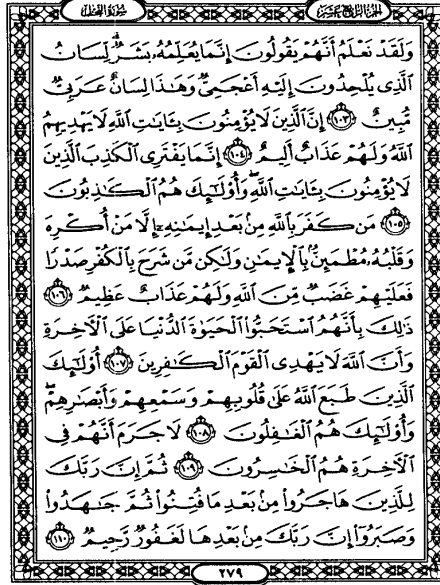 سُورَةُ النَّحْل
الجزء الرابع عشر
وَلَقَدْ نَعْلَمُ أَنَّهُمْ يَقُولُونَ إِنَّمَا يُعَلِّمُهُۥ بَشَرٌ ۗ لِّسَانُ
ٱلَّذِى يُلْحِدُونَ إِلَيْهِ أَعْجَمِىٌّ وَهَٰذَا لِسَانٌ عَرَبِىٌّ
مُّبِينٌ ١٠٣ إِنَّ ٱلَّذِينَ لَا يُؤْمِنُونَ بِـَٔايَٰتِ ٱللَّهِ لَا يَهْدِيهِمُ
ٱللَّهُ وَلَهُمْ عَذَابٌ أَلِيمٌ ١٠٤ إِنَّمَا يَفْتَرِى ٱلْكَذِبَ ٱلَّذِينَ
لَا يُؤْمِنُونَ بِـَٔايَٰتِ ٱللَّهِ ۖ وَأُو۟لَٰٓئِكَ هُمُ ٱلْكَٰذِبُونَ
١٠٥ مَن كَفَرَ بِٱللَّهِ مِنۢ بَعْدِ إِيمَٰنِهِۦٓ إِلَّا مَنْ أُكْرِهَ
وَقَلْبُهُۥ مُطْمَئِنٌّۢ بِٱلْإِيمَٰنِ وَلَٰكِن مَّن شَرَحَ بِٱلْكُفْرِ صَدْرًا
فَعَلَيْهِمْ غَضَبٌ مِّنَ ٱللَّهِ وَلَهُمْ عَذَابٌ عَظِيمٌ ١٠٦
ذَٰلِكَ بِأَنَّهُمُ ٱسْتَحَبُّوا۟ ٱلْحَيَوٰةَ ٱلدُّنْيَا عَلَى ٱلْـَٔاخِرَةِ
وَأَنَّ ٱللَّهَ لَا يَهْدِى ٱلْقَوْمَ ٱلْكَٰفِرِينَ ١٠٧ أُو۟لَٰٓئِكَ
ٱلَّذِينَ طَبَعَ ٱللَّهُ عَلَىٰ قُلُوبِهِمْ وَسَمْعِهِمْ وَأَبْصَٰرِهِمْ ۖ
وَأُو۟لَٰٓئِكَ هُمُ ٱلْغَٰفِلُونَ ١٠٨ لَا جَرَمَ أَنَّهُمْ فِى
ٱلْـَٔاخِرَةِ هُمُ ٱلْخَٰسِرُونَ ١٠٩ ثُمَّ إِنَّ رَبَّكَ
لِلَّذِينَ هَاجَرُوا۟ مِنۢ بَعْدِ مَا فُتِنُوا۟ ثُمَّ جَٰهَدُوا۟
وَصَبَرُوٓا۟ إِنَّ رَبَّكَ مِنۢ بَعْدِهَا لَغَفُورٌ رَّحِيمٌ ١١٠
٢٧٩